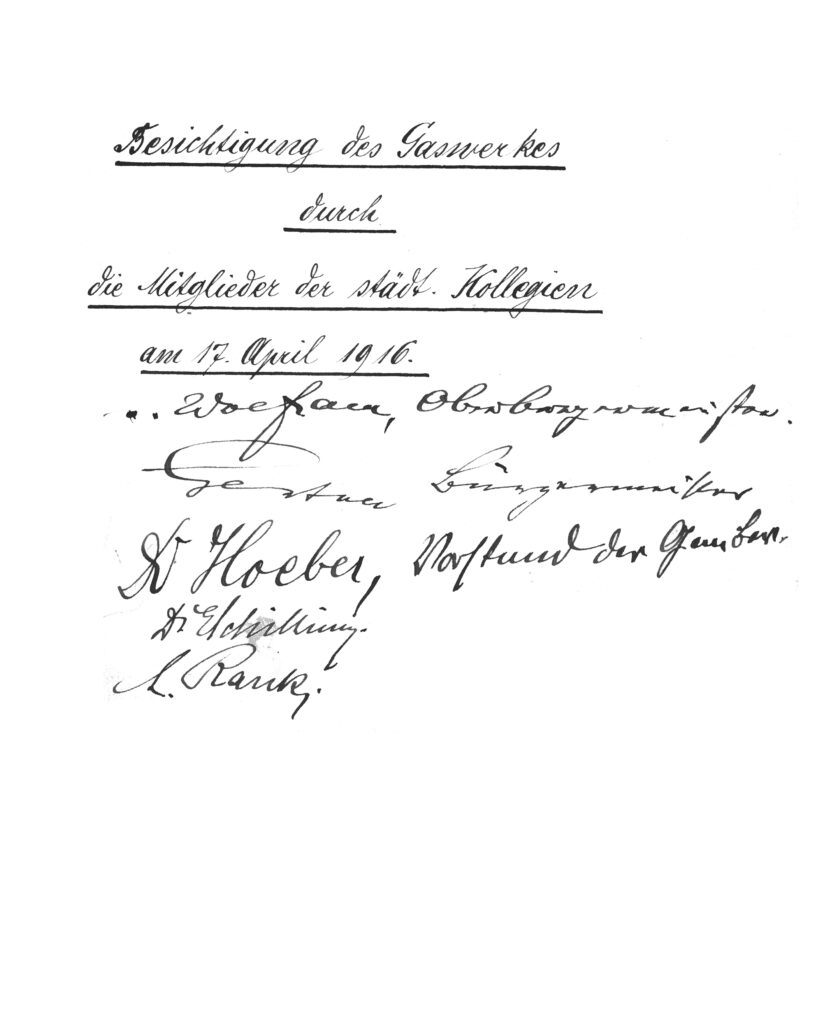 Besichtigung des Gaswerkes
durch
die Mitglieder der städt. Kollegien
am 17. April 1916.
Wolfram, Oberbürgermeister.
Bürgermeister
Dr Hoeber, Vorstand der
Dr. E Schilling.
L. Rank.